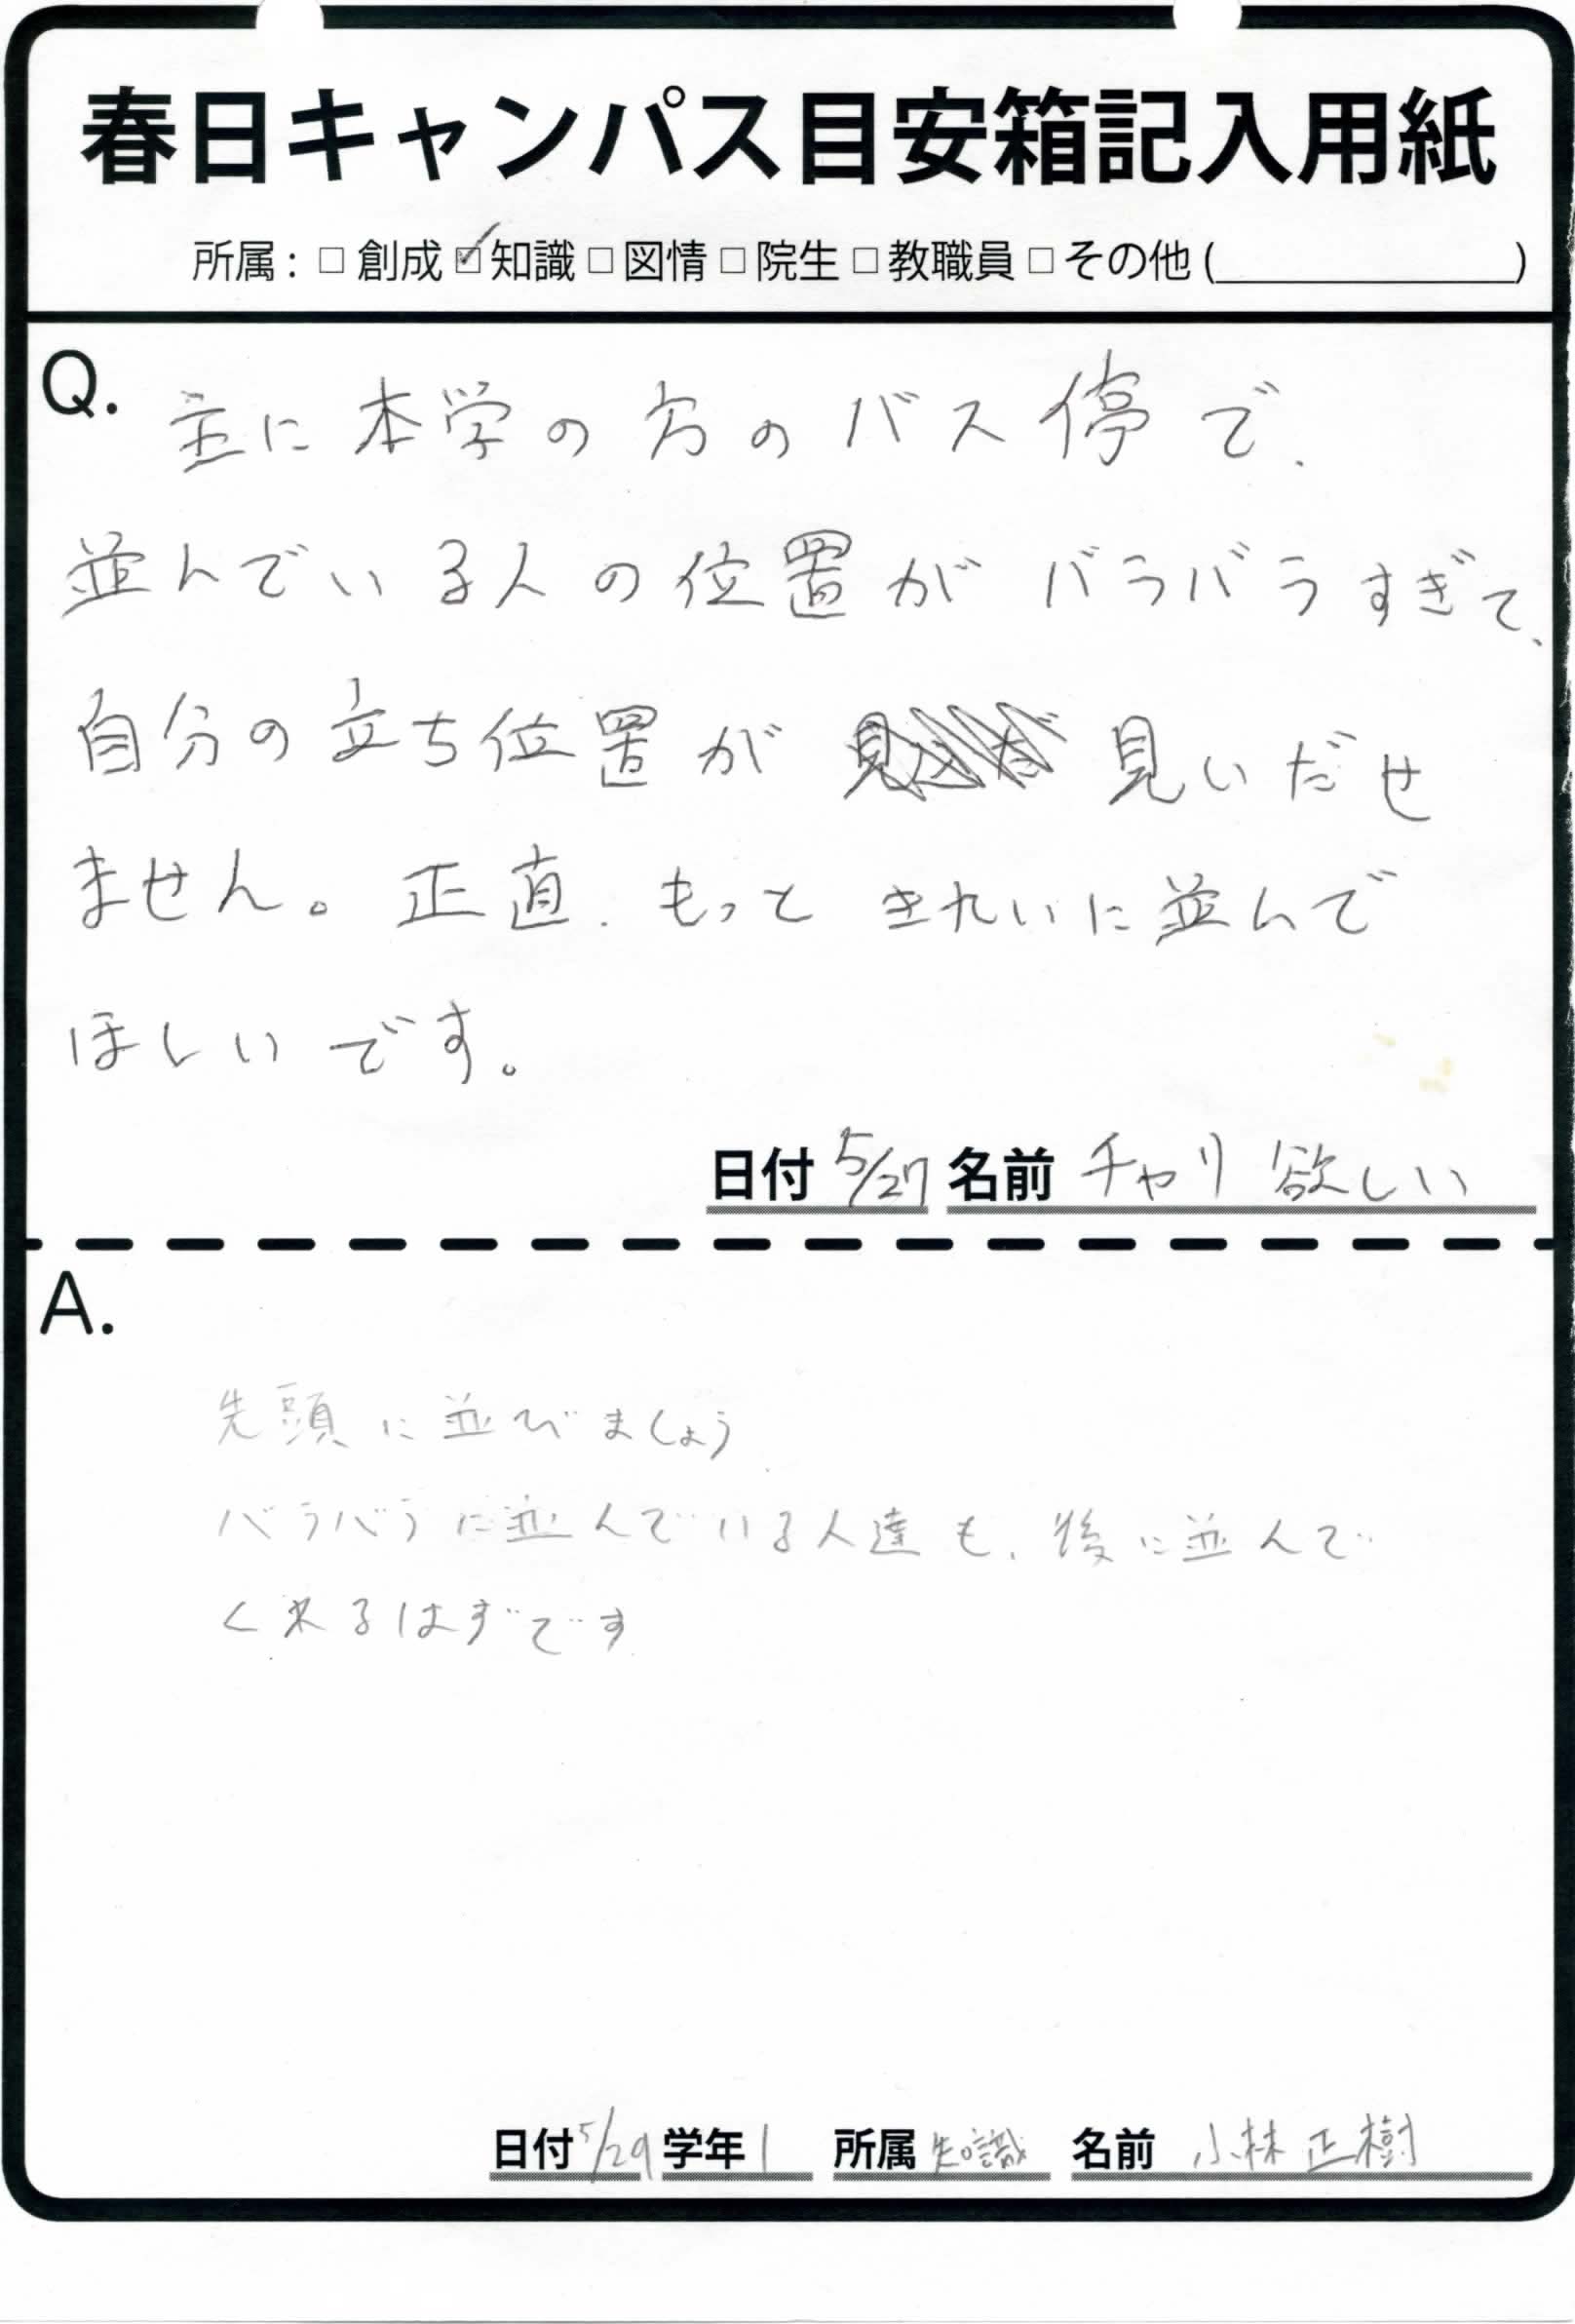 春日キャンパス目安箱記入用紙
所属：□ 創成 ☑ 知識 □ 図情 □ 院生 □ 教職員 □ その他 (　　　　　)
Q. 主に本学の方のバス停で、
並んでいる人の位置がバラバラすぎて、
自分の立ち位置が 見いだせ
ません。正直、もっときれいに並んで
ほしいです。
日付 5/27 名前 チャリ欲しい
A.
先頭に並びましょう
バラバラに並んでいる人達も、後に並んで
くれるはずです
日付 5/29 学年 1 所属 知識 名前 小林正樹